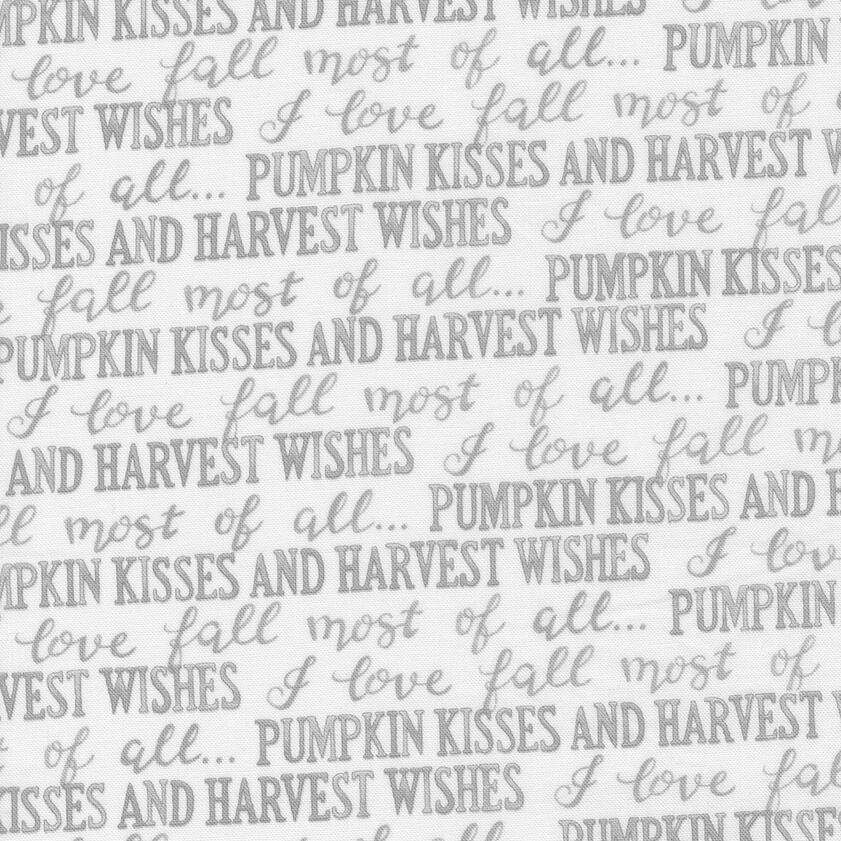 PUMPKIN KISSES AND HARVEST WISHES
love fall most of all... PUMPKIN
WISHES I love fall most of
of all... PUMPKIN KISSES AND HARVEST
AND HARVEST WISHES I love
fall most of all... PUMPKIN KISSES
PUMPKIN KISSES AND HARVEST WISHES I
I love fall most of all...
AND HARVEST WISHES I love fall
most of all... PUMPKIN KISSES AND
KISSES AND HARVEST WISHES I
love fall most of all... PUMPKIN
WISHES I love fall most of
of all... PUMPKIN KISSES AND HARVEST
KISSES AND HARVEST WISHES I love
PUMPKIN KISSES